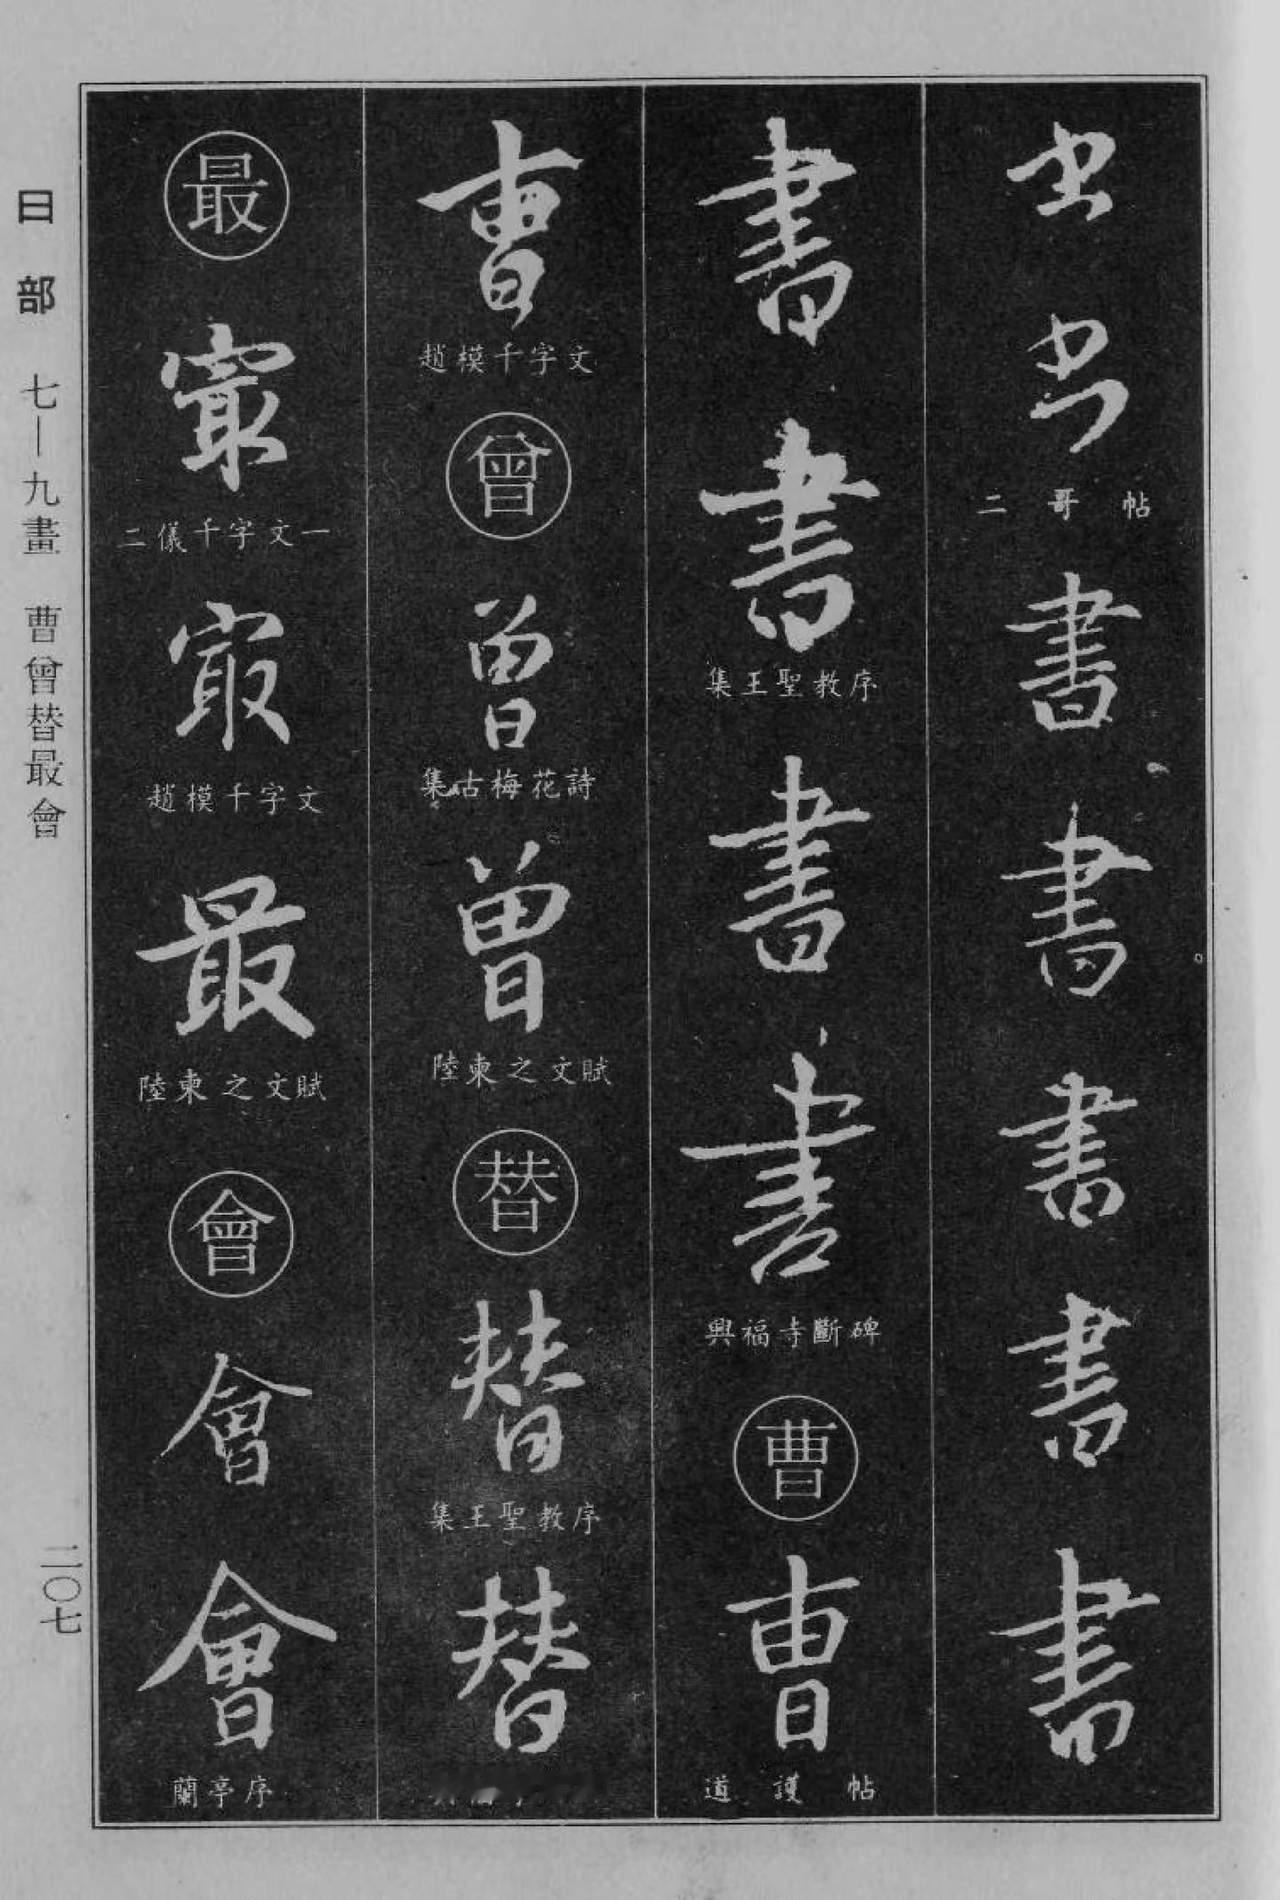 书
书
二哥帖
書
書
書
書
書
書
書
集王聖教序
書
書
興福寺斷碑
曹
曹
道護帖
曹
趙模千字文
曾
曾
集古梅花詩
曾
陸柬之文賦
替
替
集王聖教序
替
最
最
二儀千字文一
最
趙模千字文
最
陸柬之文賦
會
會
會
蘭亭序
曰部 七—九畫 曹曾替最會
二〇七